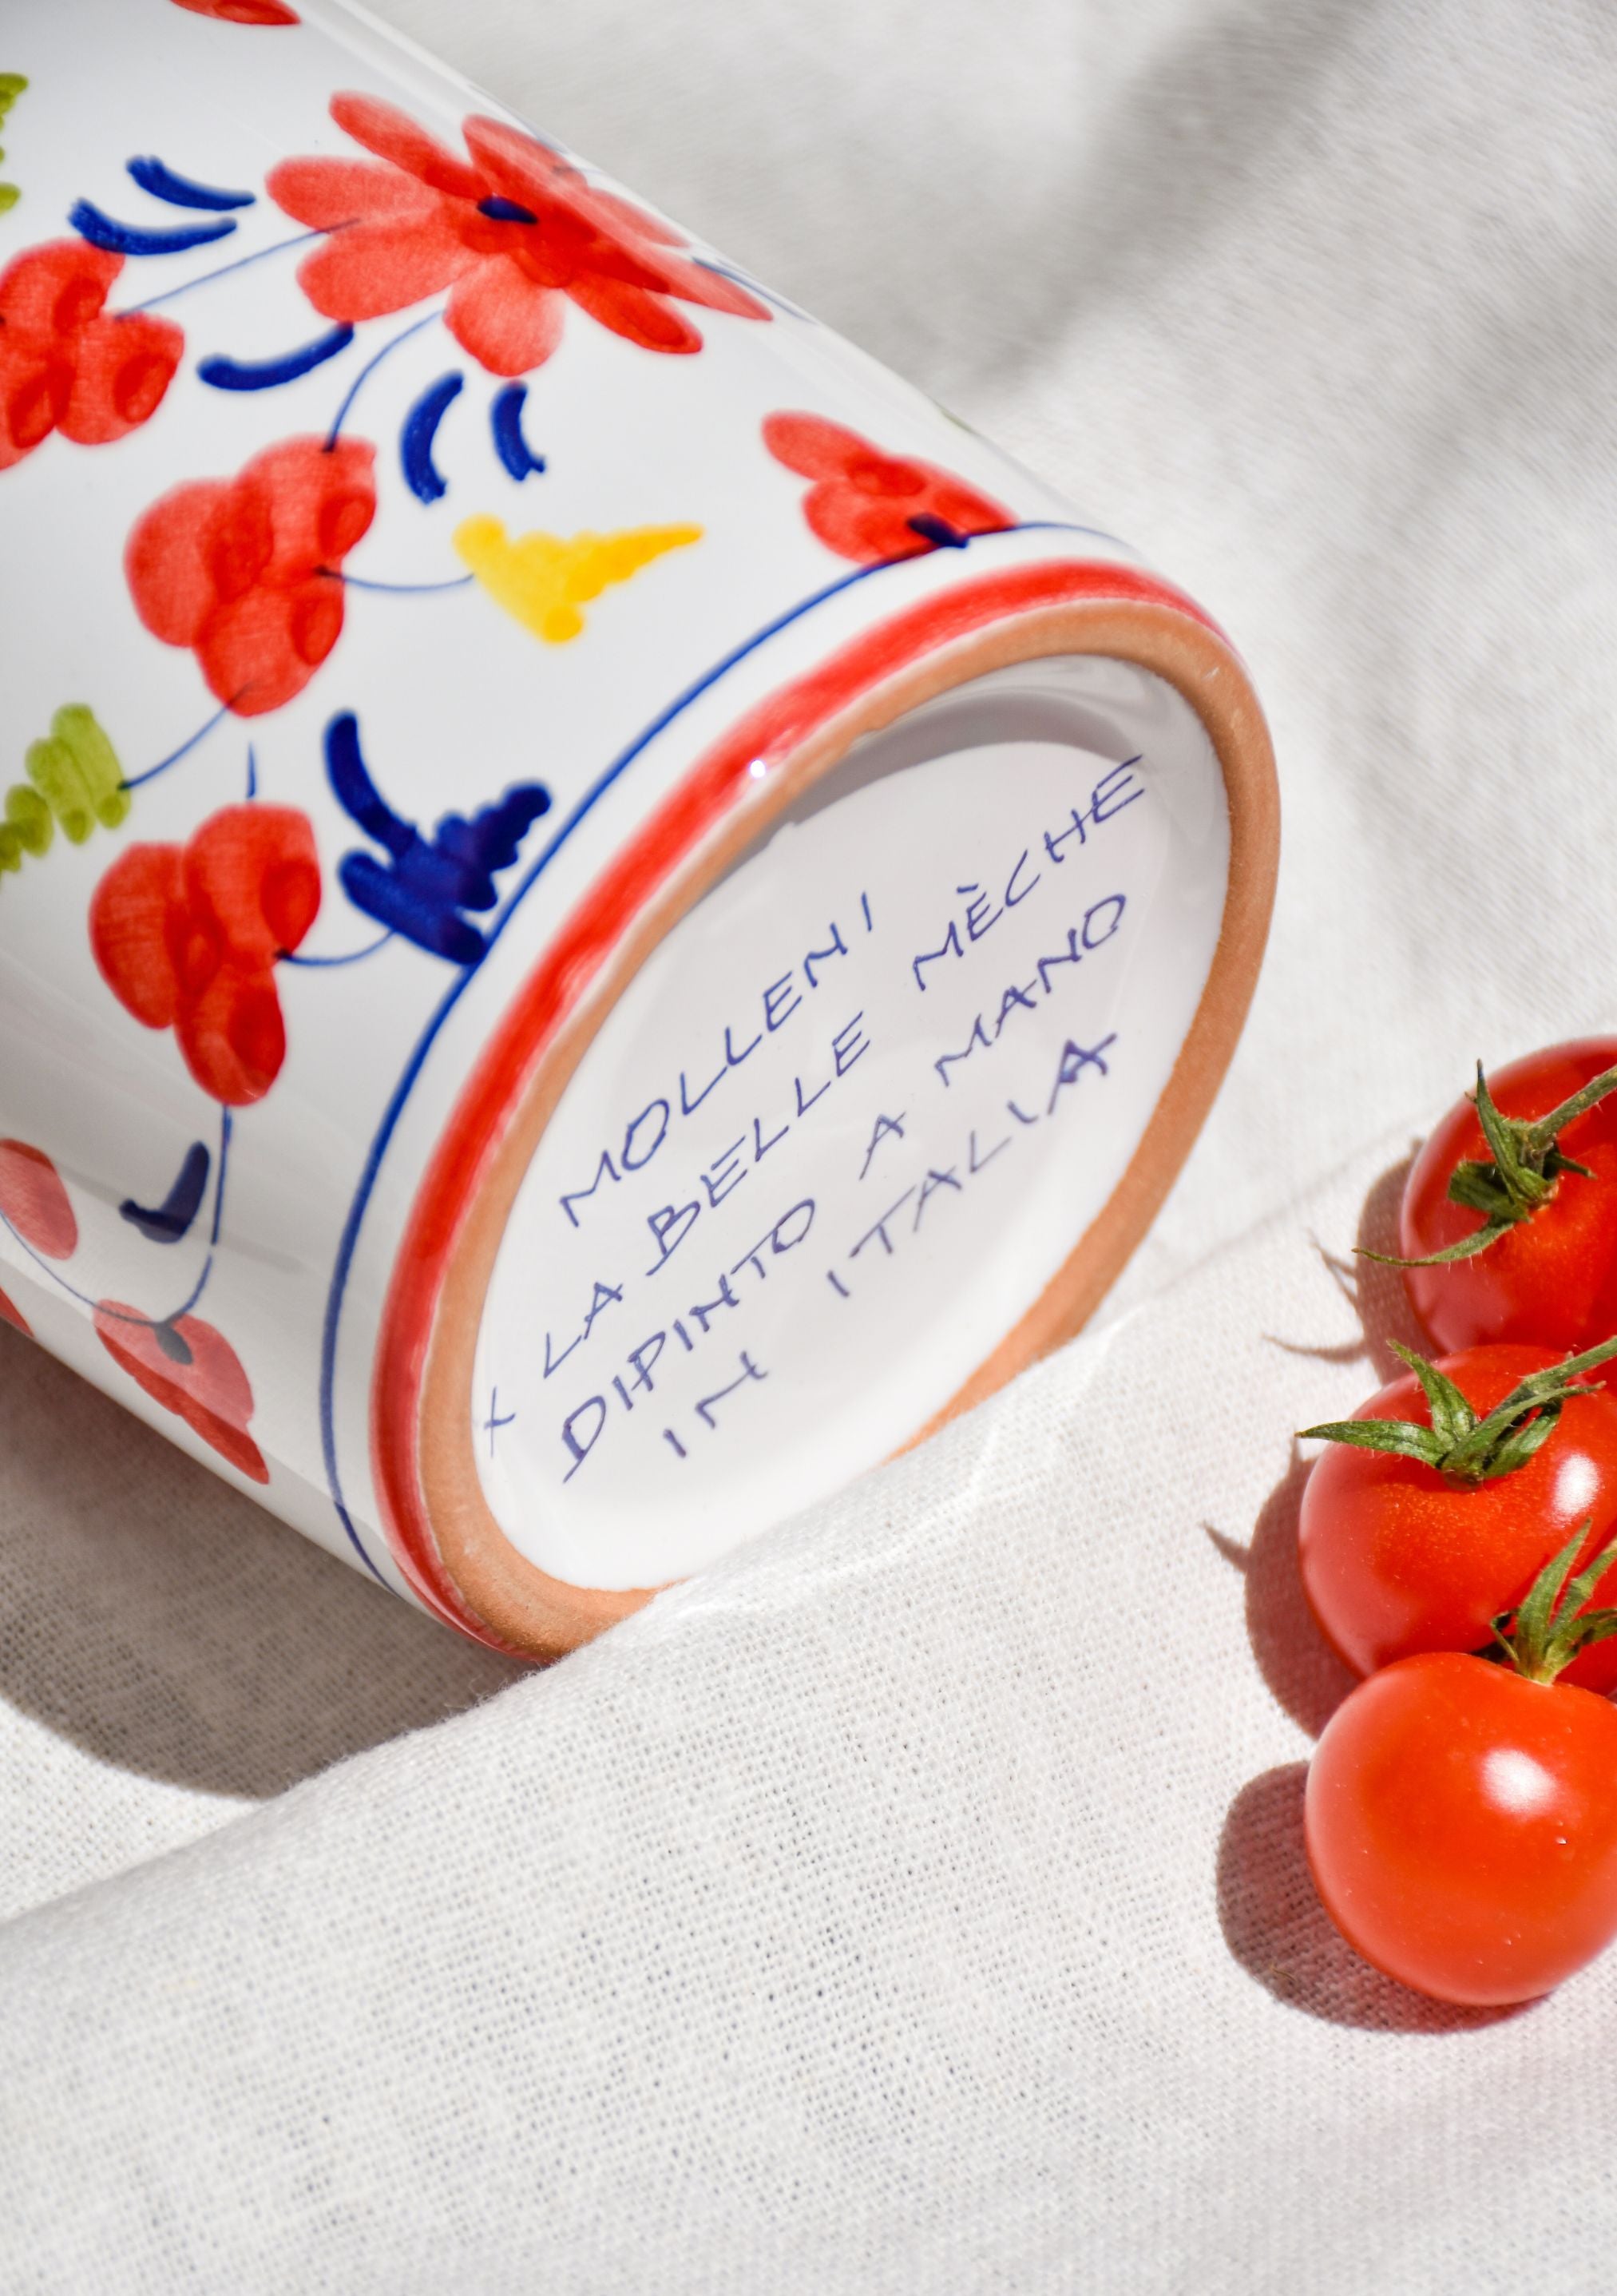 MOLLENI
X LA BELLE MÈCHE
DIPINTO A MANO
IN ITALIA